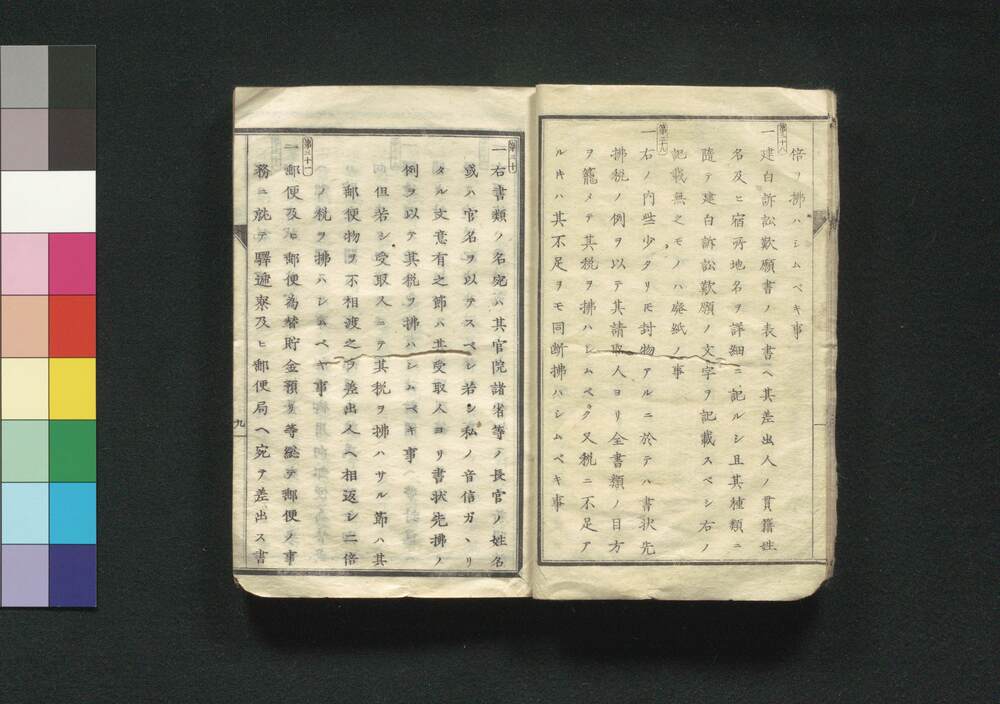 倍ヲ拂ハシムベキ事
第二十八
一建白訴訟歎願書ノ表書ヘ其差出人ノ貫籍姓
名及ヒ宿所地名ヲ詳細ニ記ルシ且其種類ニ
隨テ建白訴訟歎願ノ文字ヲ記載スベシ右ノ
記載無之モノハ廃紙ノ事
第二十九
一右ノ内些少タリ𪜈封物アルニ於テハ書状先
拂税ノ例ヲ以テ其請取人ヨリ全書類ノ目方
ヲ籠メテ其税ヲ拂ハシムベク又税ニ不足ア
ルキハ其不足ヲモ同断拂ハシムベキ事
第三十
一右書類ノ名宛ハ其官院諸省等ノ長官ノ姓名
或ハ官名ヲ以テスベシ若シ私ノ音信ガヽリ
タル文意有之節ハ其受取人ヨリ書状先拂ノ
例ヲ以テ其税ヲ拂ハシムベキ事
但若シ受取人ニテ其税ヲ拂ハサル節ハ其
郵便物ヲ不相渡之ヲ差出人ヘ相返シ二倍
ノ税ヲ拂ハシムベキ事
第三十一
一郵便及ヒ郵便為替貯金預リ等総テ郵便ノ事
務ニ就テ驛逓寮及ヒ郵便局ヘ宛テ差出ス書
九